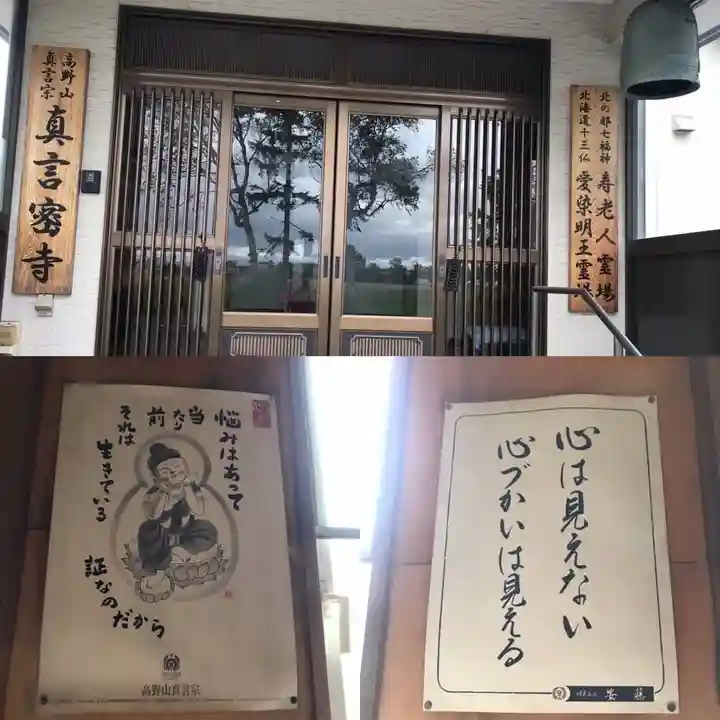 高野山
真言宗
真言密寺
北の都七福神 寿老人霊場
北海道十三仏 愛染明王霊場
悩みはあって
当たり前
それは
生きている
証なの
だから
高野山真言宗
心は見えない
心づかいは見える
安藤